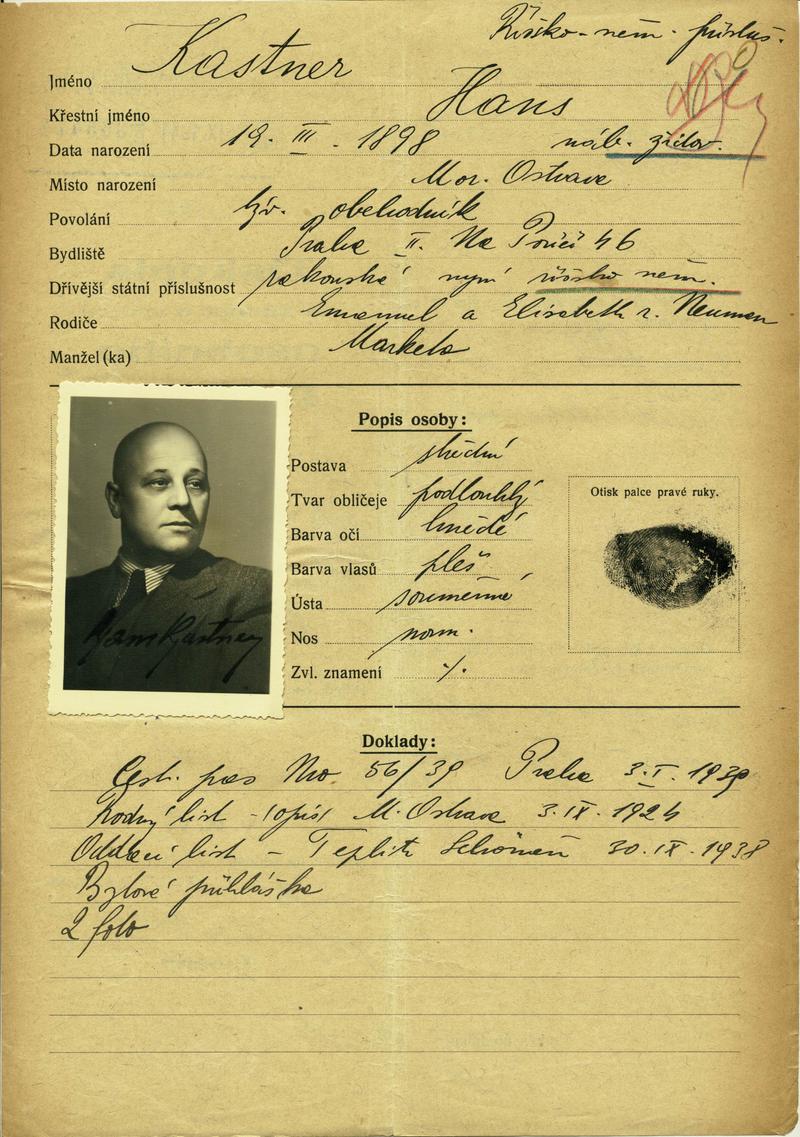 Říšsko-něm. přísluš.
Jméno Kastner
Křestní jméno Hans
Data narození 19. III. 1898 náb. židov.
Místo narození Mor. Ostrava
Povolání obchodník
Bydliště Praha II. Na Poříčí 46
Dřívější státní příslušnost rakouská nyní říšsko něm.
Rodiče Emanuel a Elisabeth r. Neuman
Manžel (ka) Marketa
Popis osoby:
Postava střední
Tvar obličeje podlouhlý
Barva očí hnědé
Barva vlasů pleš
Ústa souměrné
Nos norm.
Zvl. znamení ./.
Otisk palce pravé ruky.
Hans Kastner
Doklady:
Cest. pas No 56/39 Praha 3.I.1939
Rodný list - (opis) M. Ostrava 3.IX.1924
Oddací list - Teplitz Schönau 30.IX.1938
Bytová přihláška
2 foto